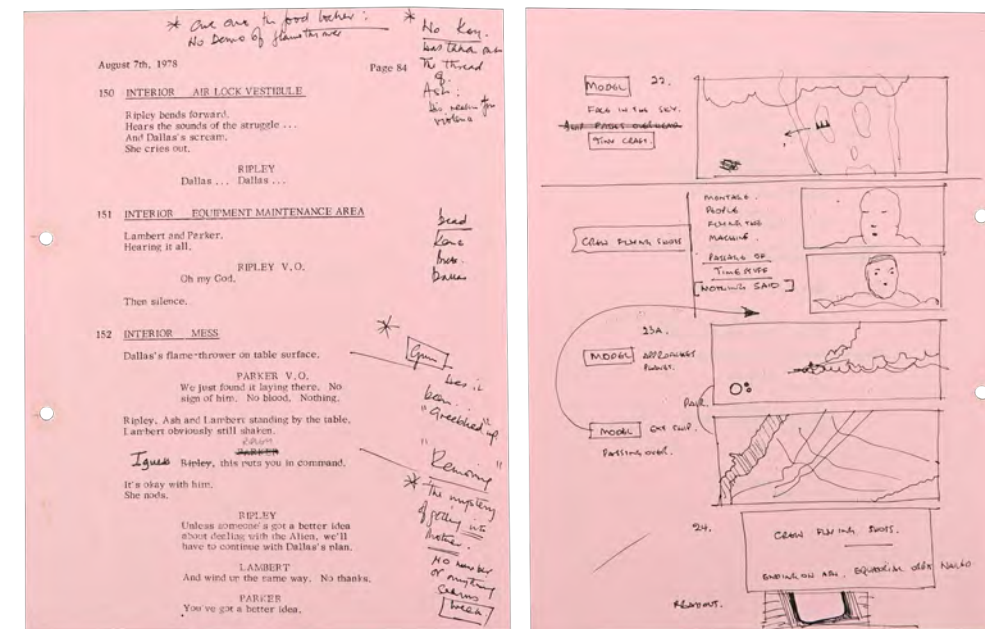 * are are the food locker :
No Demo of flamethrower
* No Key.
The thread
of
Ash :
his reason for
violence
August 7th, 1978
Page 84
150 INTERIOR AIR LOCK VESTIBULE
Ripley bends forward.
Hears the sounds of the struggle ...
And Dallas's scream.
She cries out.
RIPLEY
Dallas ... Dallas ...
151 INTERIOR EQUIPMENT MAINTENANCE AREA
Lambert and Parker.
Hearing it all.
RIPLEY V.O.
Oh my God.
Then silence.
dead
Kane
Brett.
Dallas
152 INTERIOR MESS
Dallas's flame-thrower on table surface.
PARKER V.O.
We just found it laying there. No
sign of him. No blood. Nothing.
Ripley, Ash and Lambert standing by the table.
Lambert obviously still shaken.
PARKER
I guess Ripley, this puts you in command.
It's okay with him.
She nods.
RIPLEY
Unless someone's got a better idea
about dealing with the Alien, we'll
have to continue with Dallas's plan.
LAMBERT
And wind up the same way. No thanks.
PARKER
You've got a better idea.
*
Gun
has it
been..
"Greebled" up
"Removing"
* The mystery
of getting into
Mother.
No number
or anything
seems
weak
MODEL 22.
FACE IN THE SKY.
SHIP PASSES OVERHEAD
TINY CRAFT.
CREW FLYING SHOTS
MONTAGE.
PEOPLE
FLYING THE
MACHINE.
PASSAGE OF
TIME STUFF
[NOTHING SAID]
23A.
MODEL APPROACHES
PLANET.
PAIR
MODEL EXT SHIP.
PASSING OVER.
24.
CREW FLYING SHOTS.
ENDING ON ASH. EQUATORIAL ORBIT NAILED
READOUTS.